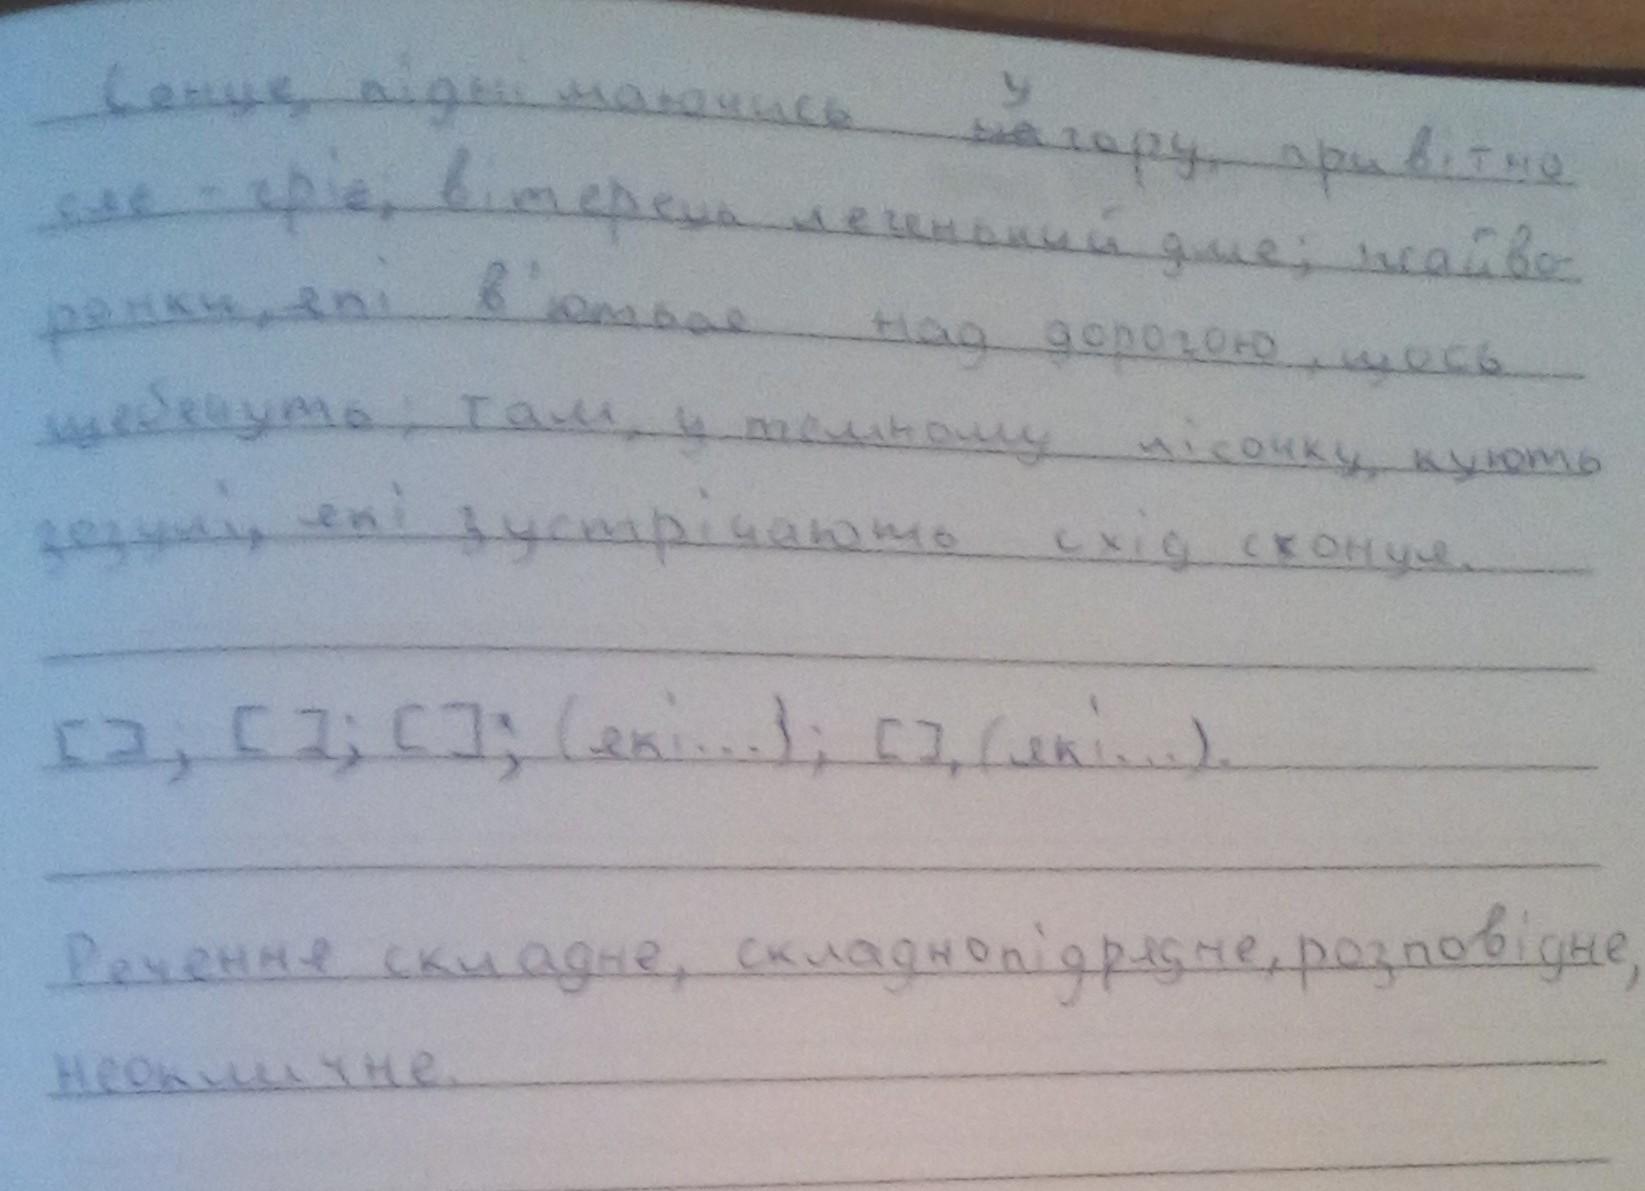 Сонце, піднімаючись у гору, привітно
сяє - гріє, вітерець легенький дме; жайво-
ронки, які в'ються над дорогою, щось
щебечуть; там, у темному лісочку, кують
зезулі, які зустрічають схід сконця.
[ ], [ ]; [ ]; (які...); [ ], (які...).
Речення складне, складнопідрядне, розповідне,
неокличне.